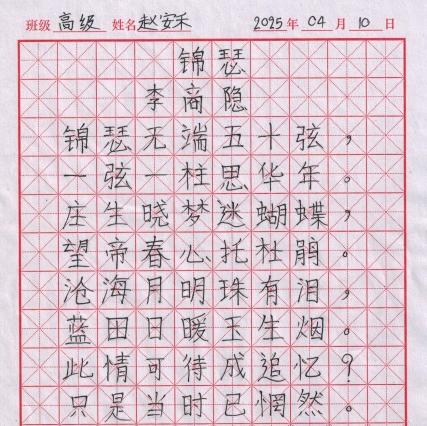 班级 高级 姓名 赵安禾 2025 年 04 月 10 日
锦瑟
李商隐
锦瑟无端五十弦，
一弦一柱思华年。
庄生晓梦迷蝴蝶，
望帝春心托杜鹃。
沧海月明珠有泪，
蓝田日暖玉生烟。
此情可待成追忆？
只是当时已惘然。